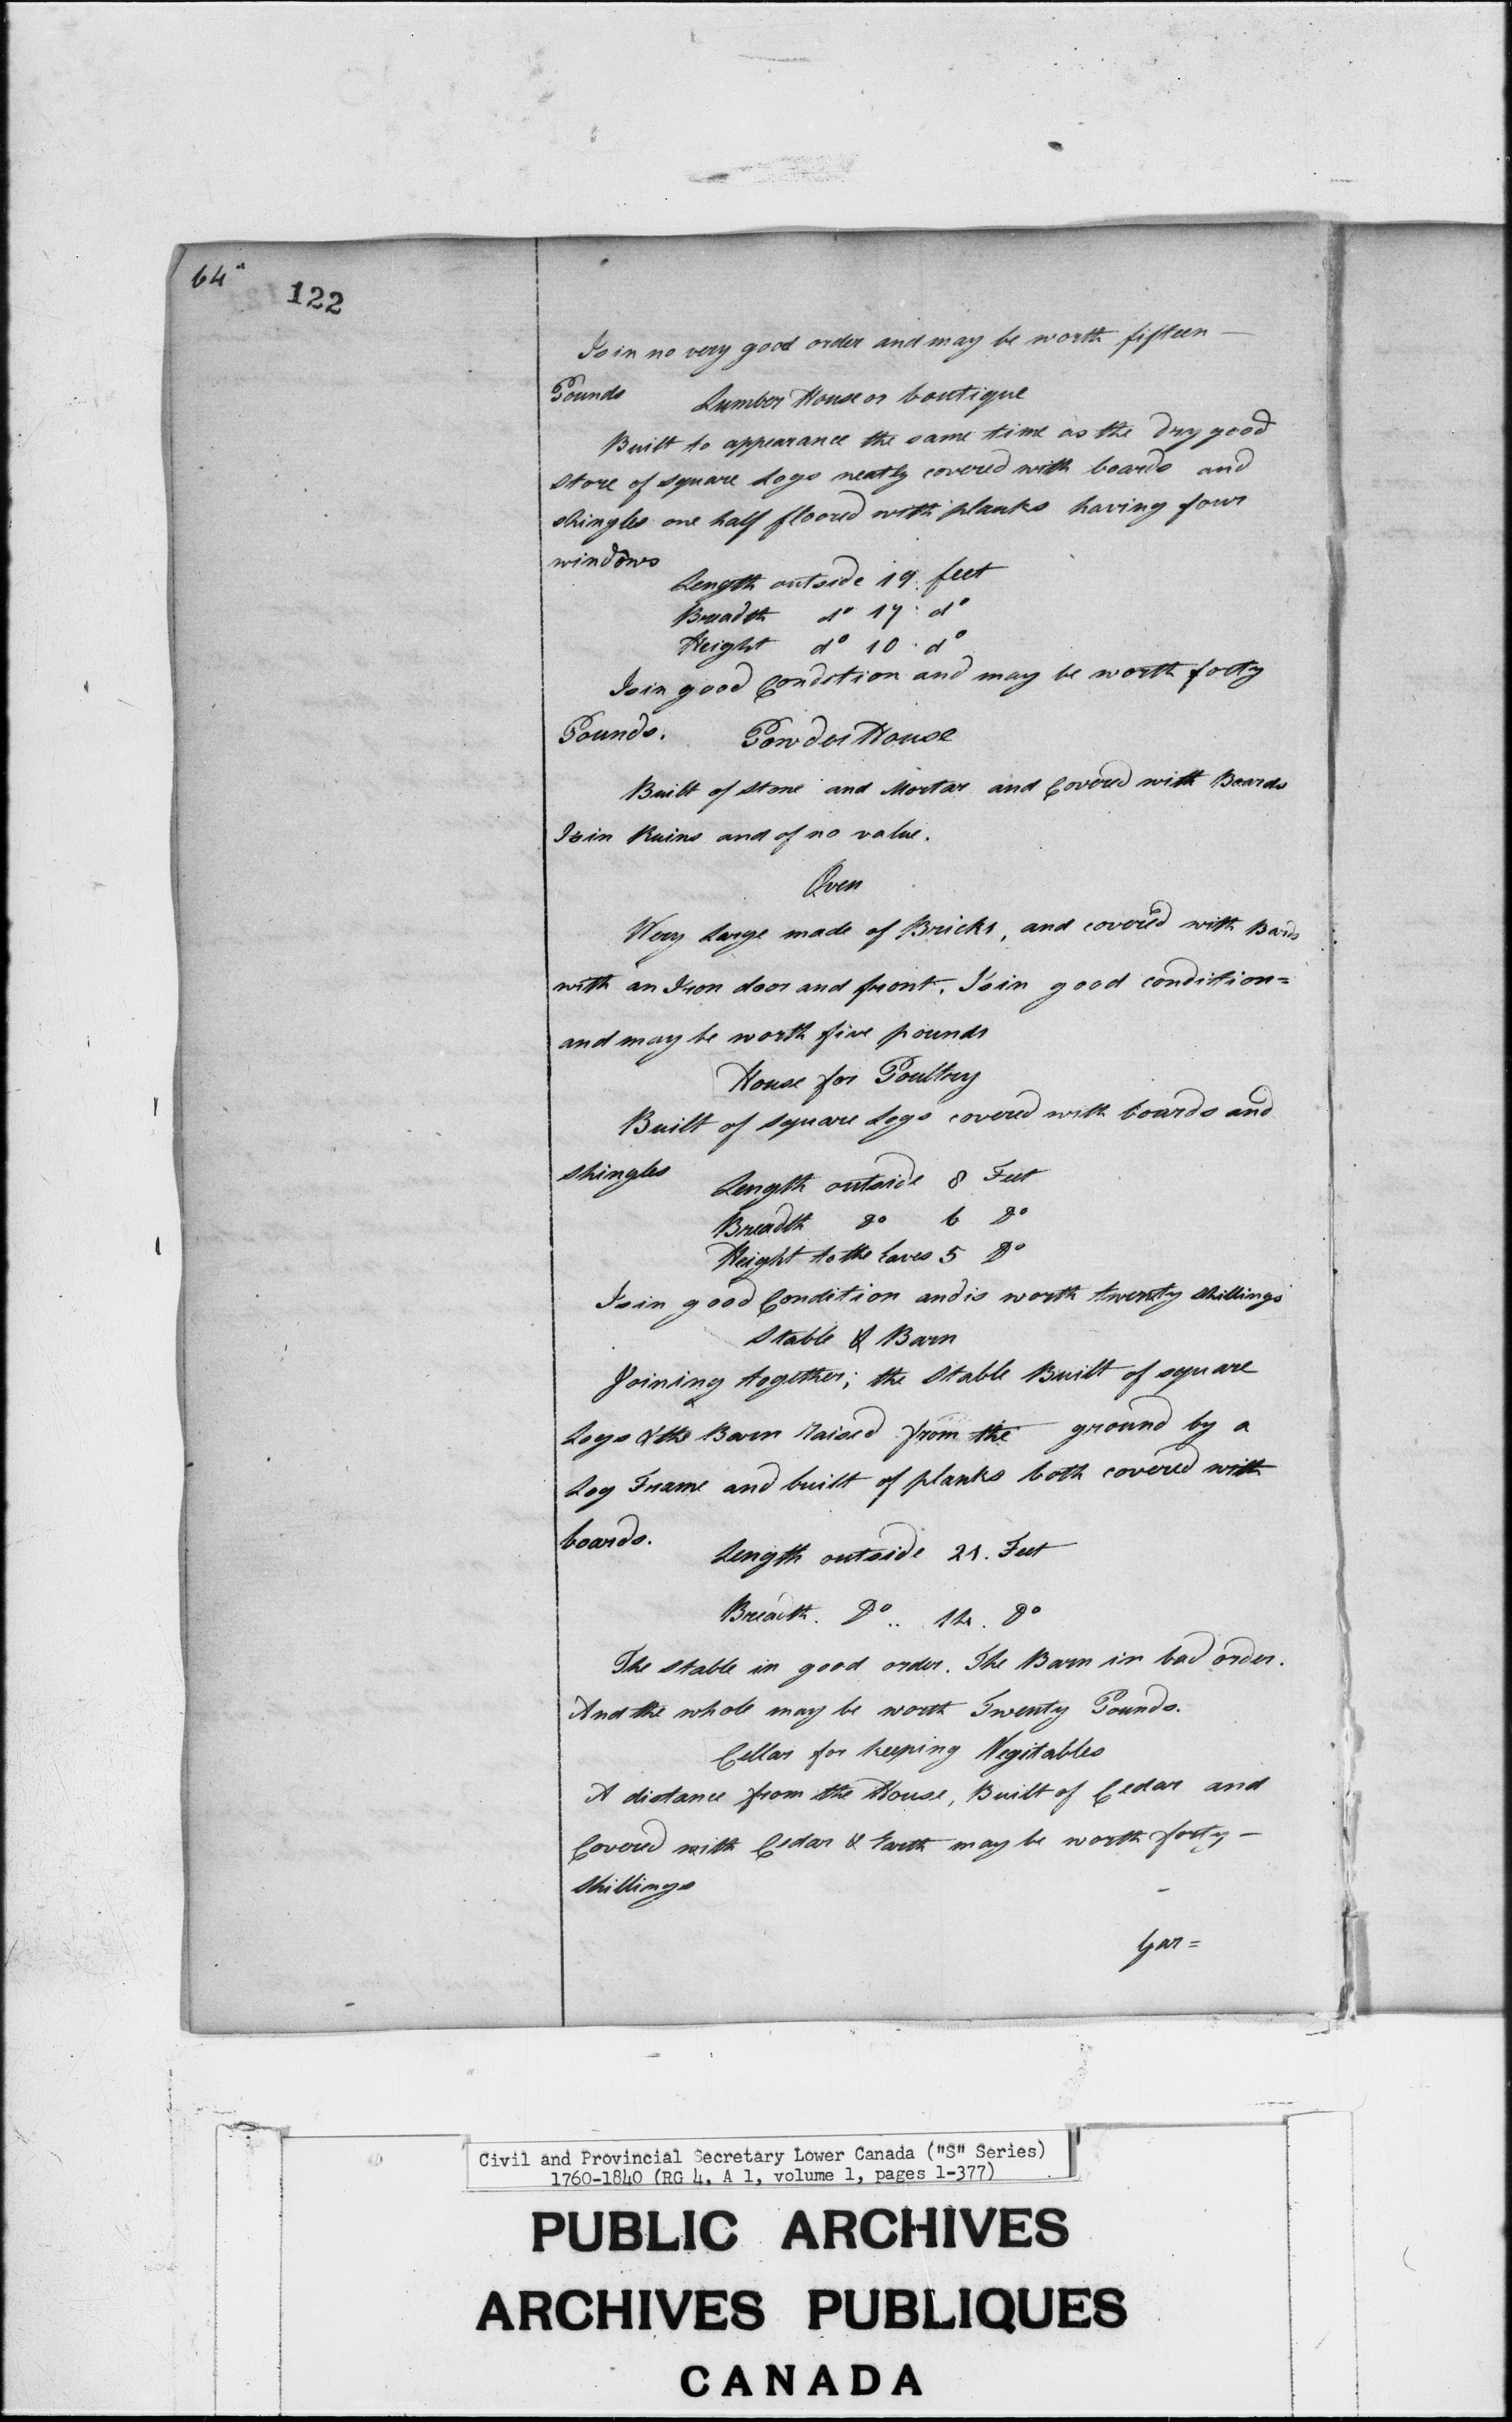 64
122
Is in no very good order and may be worth fifteen —
Pounds Lumber House or boutique
Built to appearance the same time as the Dry good
store of square Logs neatly covered with boards and
shingles one half floored with planks having four
windows
Length outside 19. feet
Breadth do 17. do
Height do 10. do
Is in good Condition and may be worth forty
Pounds. Powder House
Built of stone and Mortar and Covered with Boards
Is in Ruins and of no value.
Oven
Very Large made of Bricks, and covered with Bards
with an Iron door and front. Is in good condition=
and may be worth five pounds
House for Poultry
Built of square Logs covered with boards and
shingles Length outside 8 Feet
Breadth Do 6 Do
Height to the Eaves 5 Do
Is in good Condition and is worth twenty shillings
Stable & Barn
Joining together; the Stable Built of square
Logs & the Barn raised from the ground by a
Log Frame and built of planks both covered with
boards. Length outside 21. Feet
Breadth. Do .. Do
The stable in good order. The Barn in bad order.
And the whole may be worth Twenty Pounds.
Cellar for keeping Vegitables
A distance from the House, Built of Cedar and
Covered with Cedar & Earth may be worth forty —
shillings
Gar=
Civil and Provincial Secretary Lower Canada ("S" Series)
1760-1840 (RG 4, A 1, volume 1, pages 1-377)
PUBLIC ARCHIVES
ARCHIVES PUBLIQUES
CANADA